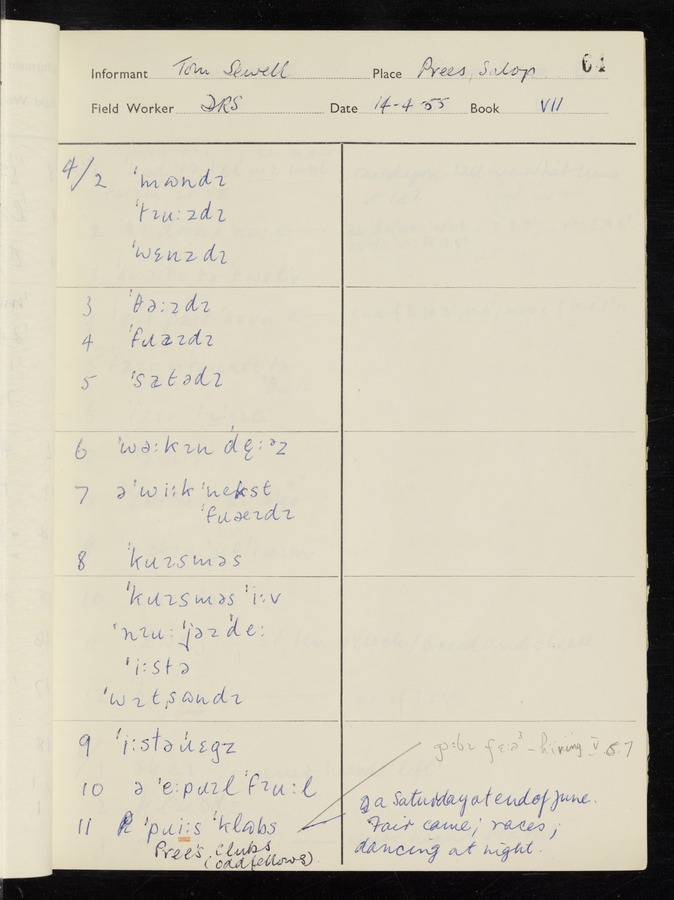 Informant Tom Sewell Place Prees, Salop. 64
Field Worker DRS Date 14-4-55 Book VII
4/2 ˈmɒndɪ
ˈtɪu:zdɪ
ˈwɛnzdɪ
3 ˈθə:zdɪ
4 ˈfɹaɪdɪ
5 ˈsatədɪ
6
7 ə ˈwi:k ˈnekst
ˈfɹaɪdɪ
8 ˈkɹɪsməs
ˈkɹɪsməs ˈi:v
ˈnɪu: ˈjəz ˈde:
ˈi:stə
ˈwɪtˌsɒndɪ
9 ˈi:stəɹɛgz
10 ə ˈe:pɹɪl ˈfɪu:l
11 ˈpɹi:s ˈklɒbs
Prees clubs
(oddfellows).
- hiring V 8.7
a Saturday at end of June.
Fair came; races;
dancing at night.